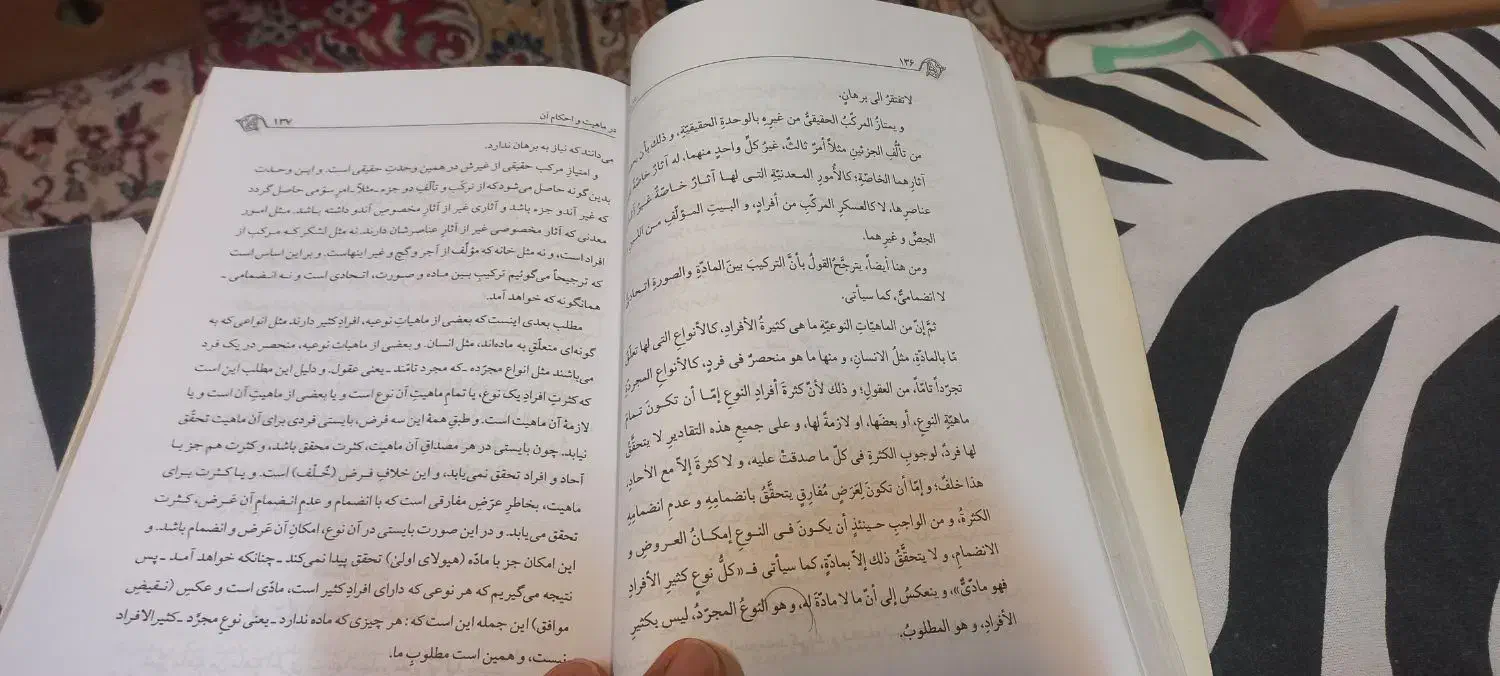 ۱۳۶
لاتفتقرُ الی برهانٍ.
و یمتازُ المرکّبُ الحقیقیُّ من غیرِهِ بالوحدةِ الحقیقیّةِ، و ذلك بأن
من تألُّفِ الجزئینِ مثلاً أمرٌ ثالثٌ، غیرُ کلِّ واحدٍ منهما، له آثارٌ خاصّةٌ
آثارِهما الخاصّةِ؛ کالأُمورِ المعدنیّةِ التی لها آثـارٌ خـاصّةٌ غـیرُ
عناصرِها، لا کالعسکرِ المرکّبِ من أفرادٍ، و البـیتِ المـؤلّفِ مـن اللبنِ
الجصِّ و غیرِهما.
ومن هنا أیضاً، یترجَّحُ القولُ بأنَّ الترکیبَ بینَ المادّةِ والصورةِ
لا انضمامیٌّ، کما سیأتی.
ثمَّ إنّ من الماهیّاتِ النوعیّةِ ما هی کثیرةُ الأفرادِ، کالأنواعِ التی لها تعلّقٌ
مّا بالمادّةِ، مثلُ الانسانِ، و منها ما هو منحصرٌ فی فردٍ، کالأنواعِ المجردّةِ
تجرّداً تامّاً، من العقولِ؛ و ذلك لأنّ کثرةَ أفرادِ النوعِ إمّـا أن تکـونَ تـمامَ
ماهیّةِ النوعِ، أو بعضَها، او لازمةً لها، و علی جمیعِ هذه التقادیرِ لا یتحقَّقُ
لها فردٌ، لوجوبِ الکثرةِ فی کلِّ ما صدقتْ علیه، و لا کثرةَ إلاّ مع الآحادِ،
هذا خلفٌ؛ و إمّا أن تکونَ لِعَرَضٍ مُفارِقٍ یتحقَّقُ بانضمامِهِ و عدمِ انضمامِهِ
الکثرةُ، و من الواجبِ حـینئذٍ أن یکـونَ فـی النـوعِ إمکـانُ العـروضِ و
الانضمامِ، و لا یتحقَّقُ ذلك إلاّ بمادّةٍ، کما سیأتی فـ«کلُّ نوعٍ کثیرِ الأفرادِ
فهو مادّیٌّ»، و ینعکسُ إلی أنّ ما لا مادّةَ له، و هو النوعُ المجرّدُ، لیس بکثیرِ
الأفرادِ، و هو المطلوبُ.
در ماهیت و احکام آن ۱۳۷
می‌دانند که نیاز به برهان ندارد.
و امتیازِ مرکب حقیقی از غیرش در همین وحدتِ حقیقی است. و ایـن وحـدت
بدین گونه حاصل می‌شود که از ترکّب و تألّفِ دو جزء ـ مثلاً ـ امرِ سوّمی حاصل گردد
که غیر آندو جزء باشد و آثاری غیر از آثارِ مخصوصِ آندو داشته بـاشد. مـثل امـورِ
معدنی که آثار مخصوصی غیر از آثارِ عناصرشان دارند. نه مثل لشکر کـه مـرکب از
افراد است، و نه مثل خانه که مؤلّف از آجر و گچ و غیر اینهاست. و بر این اساس است
که ترجیحاً می‌گوئیم ترکیبِ بین مـاده و صـورت، اتـحادی است و نـه انـضمامی ـ
همانگونه که خواهد آمد.
مطلب بعدی اینست که بعضی از ماهیاتِ نوعیه، افرادِ کثیر دارند مثل انواعی که به
گونه‌ای متعلّقِ به ماده‌اند، مثل انسان. و بعضی از ماهیاتِ نوعیه، منحصر در یک فرد
می‌باشند مثل انواع مجرّده ـ که مجرد تامّند ـ یعنی عقول. و دلیل این مطلب این است
که کثرتِ افرادِ یک نوع، یا تمامِ ماهیتِ آن نوع است و یا بعضی از ماهیتِ آن است و یا
لازمهٔ آن ماهیت است. و طبقِ همهٔ این سه فرض، بایستی فردی برای آن ماهیت تحقّق
نیابد. چون بایستی در هر مصداقِ آن ماهیت، کثرت محقق باشد، و کثرت هم جز بـا
آحاد و افراد تحقق نمی‌یابد، و این خلافِ فـرض (خُـلْف) است. و یـا کـثرت بـرای
ماهیت، بخاطرِ عرَضِ مفارقی است که با انضمام و عدمِ انـضمامِ آن عَـرَض، کـثرت
تحقق می‌یابد. و در این صورت بایستی در آن نوع، امکانِ آن عَرَض و انضمام باشد. و
این امکان جز با مادّه (هیولای اولیٰ) تحقق پیدا نمی‌کند ـ چنانکه خواهد آمـد ـ پس
نتیجه می‌گیریم که هر نوعی که دارای افرادِ کثیر است، مادّی است و عکسِ (نـقیضِ
موافق) این جمله این است که: هر چیزی که ماده ندارد ـ یعنی نوعِ مجرَّد ـ کثیرالافراد
نیست، و همین است مطلوبِ ما.